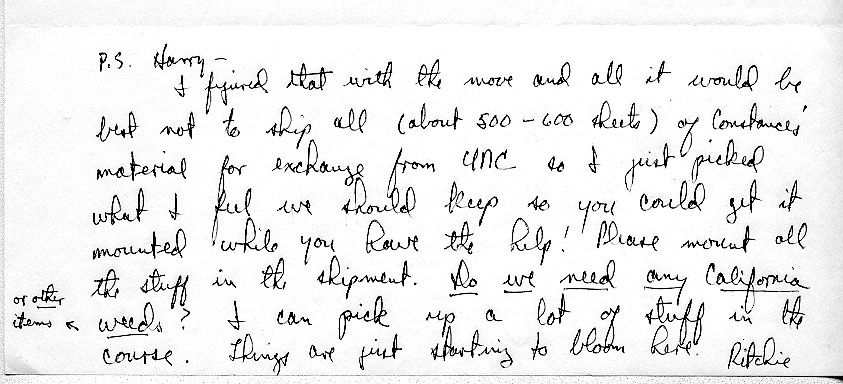 P.S. Harry -
I figured that with the move and all it would be
best not to ship all (about 500 - 600 sheets) of Constances'
material for exchange from UNC so I just picked
what I feel we should keep so you could get it
mounted while you have the help! Please mount all
the stuff in the shipment. Do we need any California
or other
items
weeds? I can pick up a lot of stuff in the
course. Things are just starting to bloom here. Ritchie